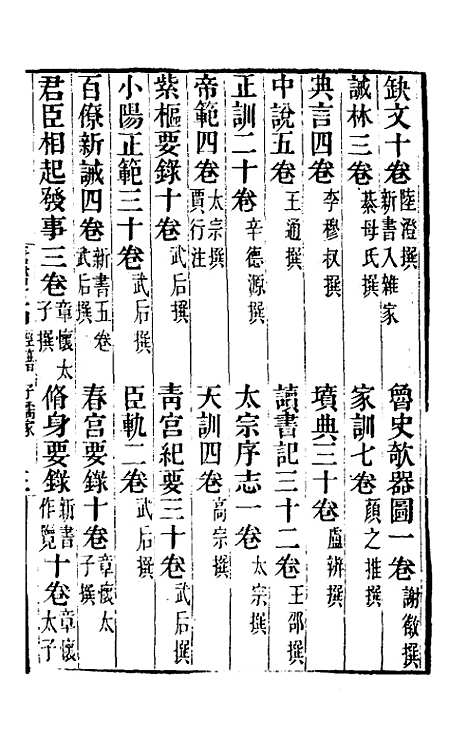 缺文十卷 陸澄撰 新書入雜家 魯史欹器圖一卷 謝徽撰
誡林三卷 綦母氏撰 家訓七卷 顏之推撰
典言四卷 李穆叔撰 墳典三十卷 盧辨撰
中說五卷 王通撰 讀書記三十二卷 王邵撰
正訓二十卷 辛德源撰 太宗序志一卷 太宗撰
帝範四卷 太宗撰 賈行注 天訓四卷 高宗撰
紫樞要錄十卷 武后撰 青宮紀要三十卷 武后撰
少陽正範三十卷 武后撰 臣軌二卷 武后撰
百僚新誡四卷 新書五卷 武后撰 春宮要錄十卷 章懷太子撰
君臣相起發事三卷 章懷太子撰 脩身要錄十卷 新書作覽 章懷太子
經籍 子儒家